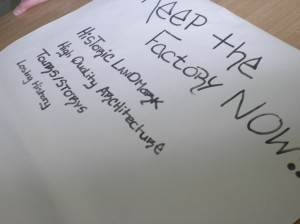 KEEP the
FactoRY NOW...
HisTORIC LANDMARK
High Quality ARCHiTecTURE
TOURS/STORYS
Losing History